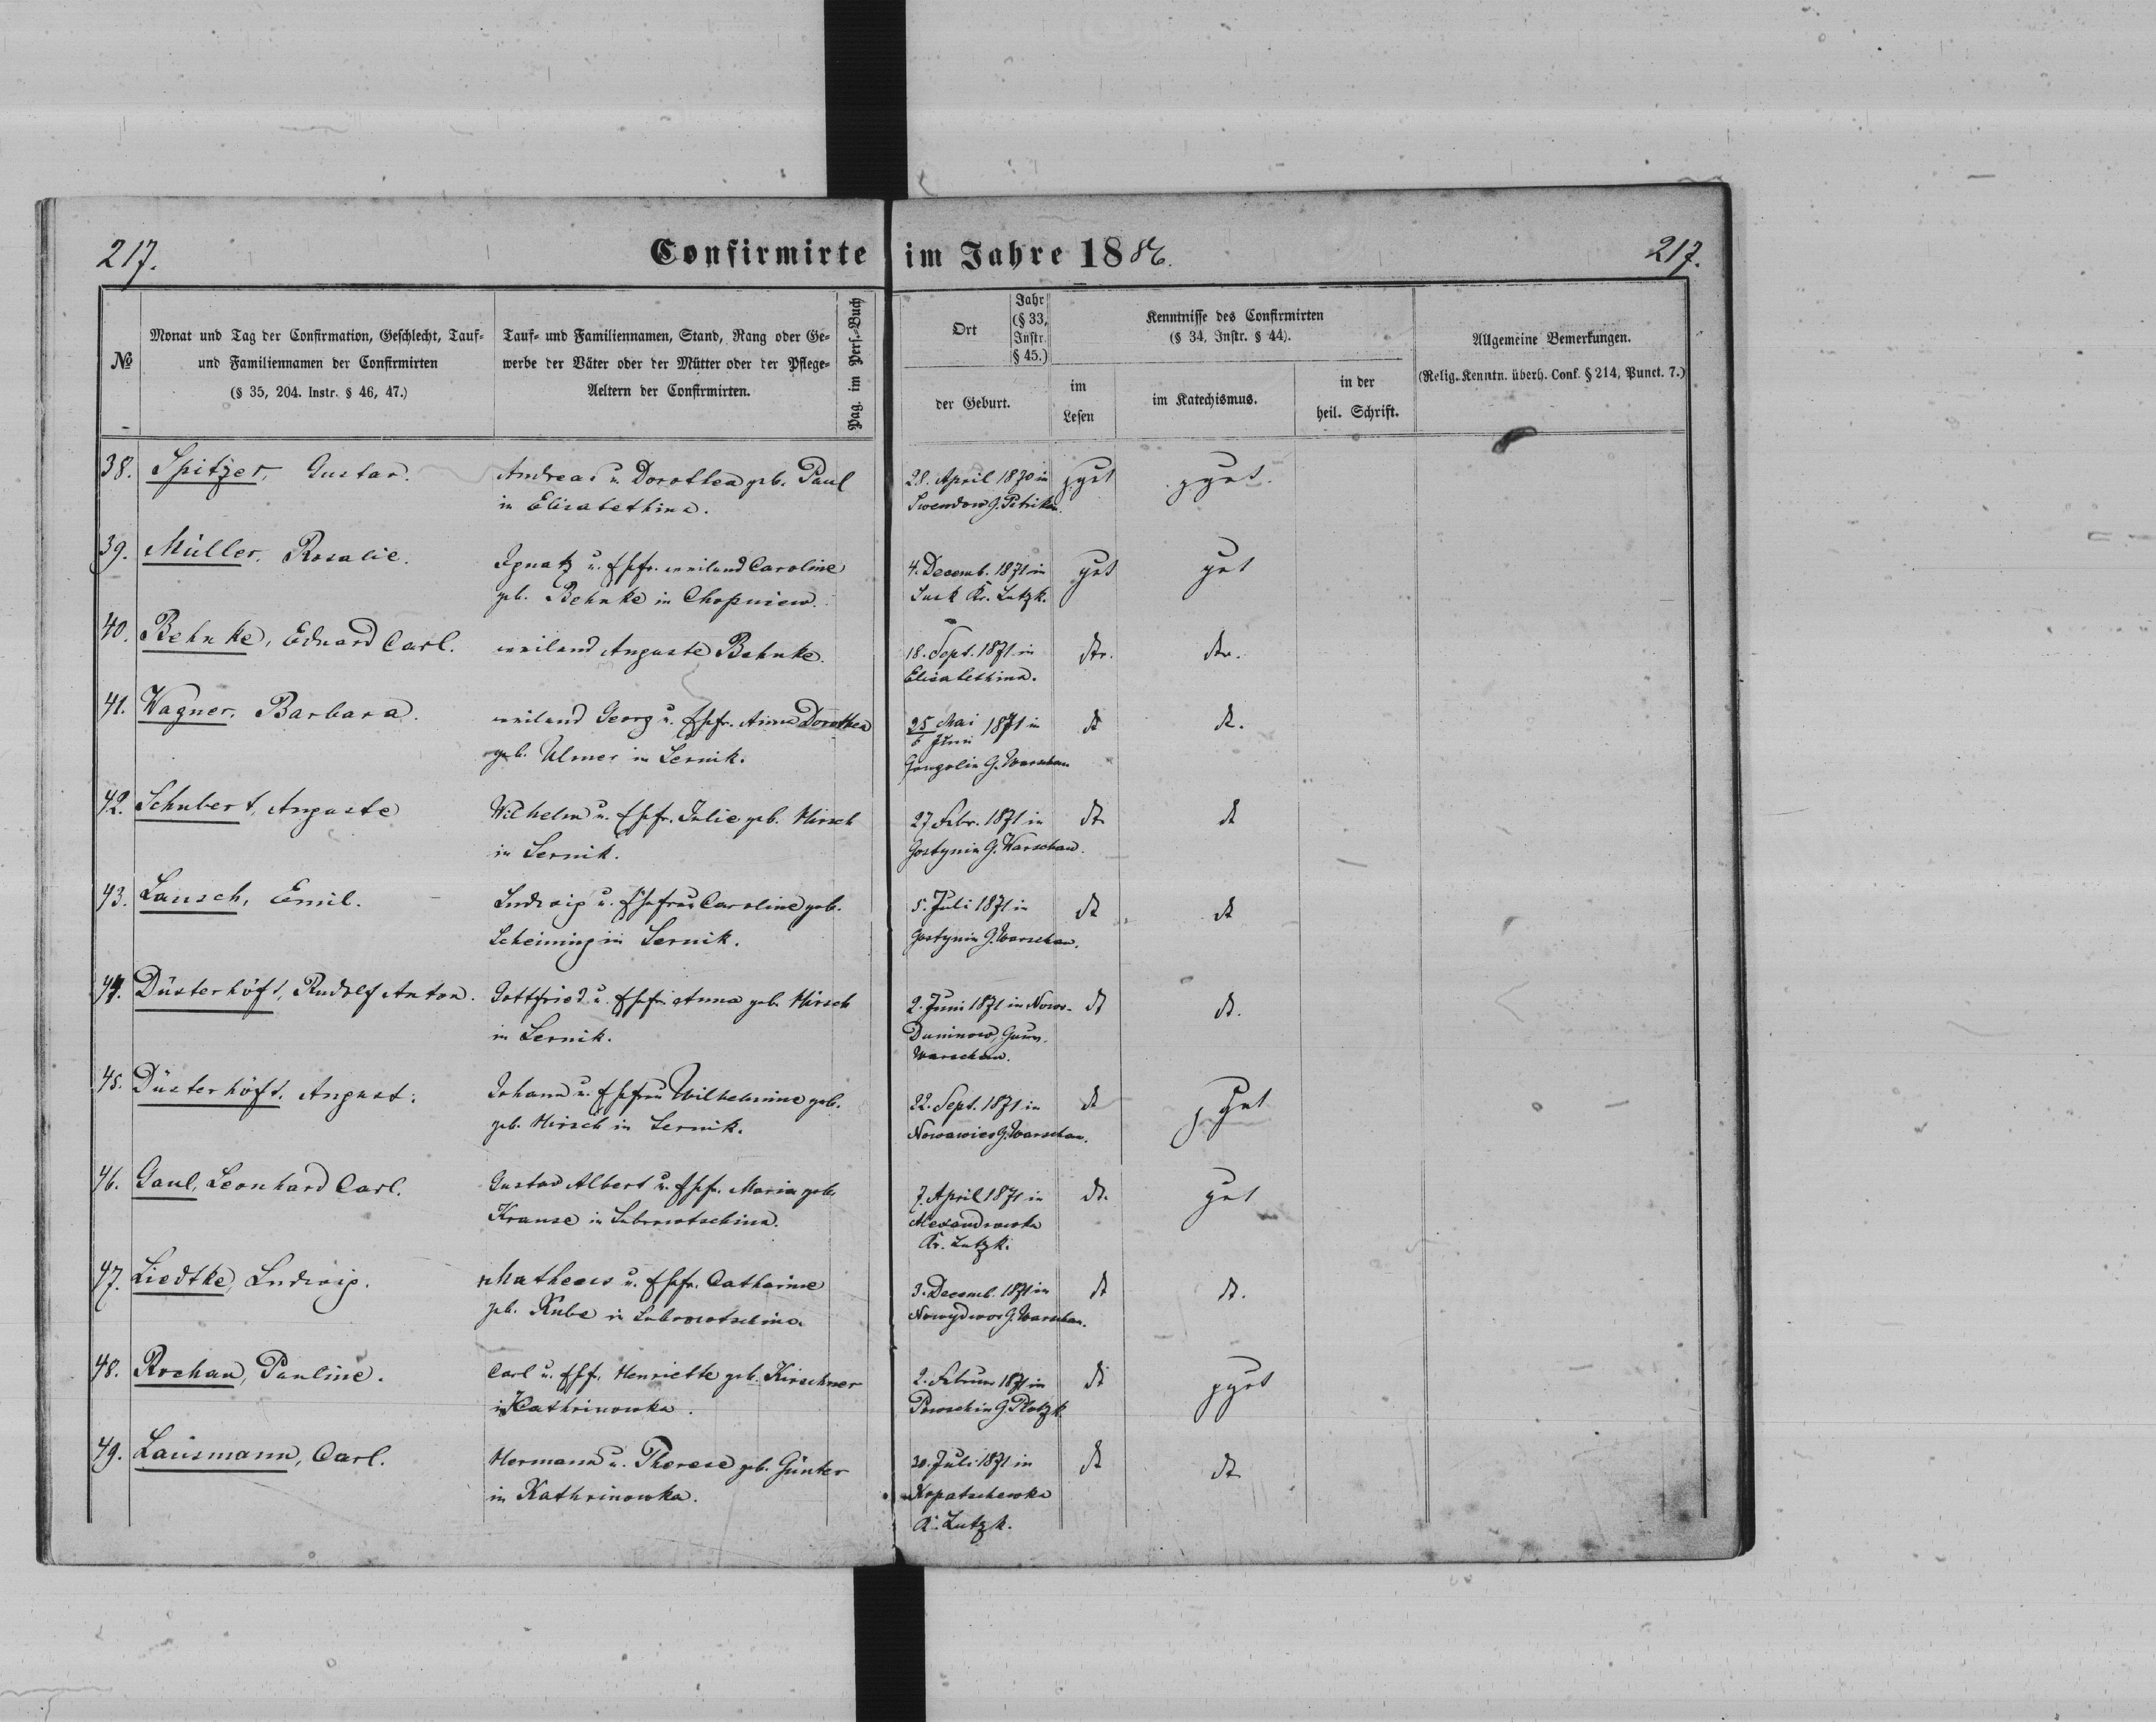 217.
Confirmirte im Jahre 1886.
217.
№
Monat und Tag der Confirmation, Geschlecht, Tauf-
und Familiennamen der Confirmirten
(§ 35, 204. Instr. § 46, 47.)
Tauf- und Familiennamen, Stand, Rang oder Ge-
werbe der Väter oder der Mütter oder der Pflege-
Aeltern der Confirmirten.
Pag. im Pers.-Buch
Ort
Jahr
(§ 33,
Instr.
§ 45.)
der Geburt.
Kenntnisse des Confirmirten
(§ 34, Instr. § 44).
im
Lesen
im Katechismus.
in der
heil. Schrift.
Allgemeine Bemerkungen.
(Relig.-Kenntn. überh. Conf. § 214, Punct. 7.)
38. Spitzer, Gustav.
Andreas u. Dorothea geb. Paul
in Elisabethina.
28. April 1870 in
G. Petrikau.
z. gut
z. gut.
39. Müller, Rosalie.
Ignatz u. Ehfr. weiland Caroline
geb. Behnke in Chopniew.
4. Decemb. 1871 in
Kr. Lutzk.
gut
gut
40. Behnke, Eduard Carl.
weiland Auguste Behnke.
18. Sept. 1871 in
Elisabethina.
dto.
dto.
41. Wagner, Barbara.
weiland Georg u. Ehfr. Anna Dorothea
geb. Ulmer in Sernik.
25 Mai
6 Juni
1871 in
G. Warschau
dt
dt.
42. Schubert, Auguste
Wilhelm u. Ehfr. Julie geb. Hirsch
in Sernik.
27 Febr. 1871 in
Gostynin G. Warschau.
dt
dt
43. Lausch, Emil.
Ludwig u. Ehefrau Caroline geb.
Scheiming in Sernik.
5. Juli 1871 in
Gostynin G. Warschau.
dt
dt
44. Düsterhöft, Rudolf Anton.
Gottfried u. Ehfr. Anna geb. Hirsch
in Sernik.
2. Juni 1871 in Nowo-
Duninow, Gouv.
Warschau.
dt
dt.
45. Düsterhöft, August.
Johann u. Ehfrau Wilhelmine geb.
geb. Hirsch in Sernik.
22. Sept. 1871 in
Nowawies G. Warschau.
dt
z. gut
46. Gaul, Leonhard Carl.
Gustav Albert u. Ehfr. Maria geb.
Krause in
7. April 1871 in
Alexandrowka
Kr. Lutzk.
dt.
gut
47. Liedtke, Ludwig.
Matheus u. Ehfr. Catharine
geb. Kube in
3. Decemb. 1871 in
Nowydwor G. Warschau.
dt
dt.
48. Rochau, Pauline.
Carl u. Ehf. Henriette geb. Kirschner
in Kathrinowka.
2. Februar 1871 in
G. Plotzk
dt
z gut
49. Lausmann, Carl.
Hermann u. Therese geb. Günter
in Kathrinowka.
20. Juli 1871 in
Kopatschewka
Kr. Lutzk.
dt
dt